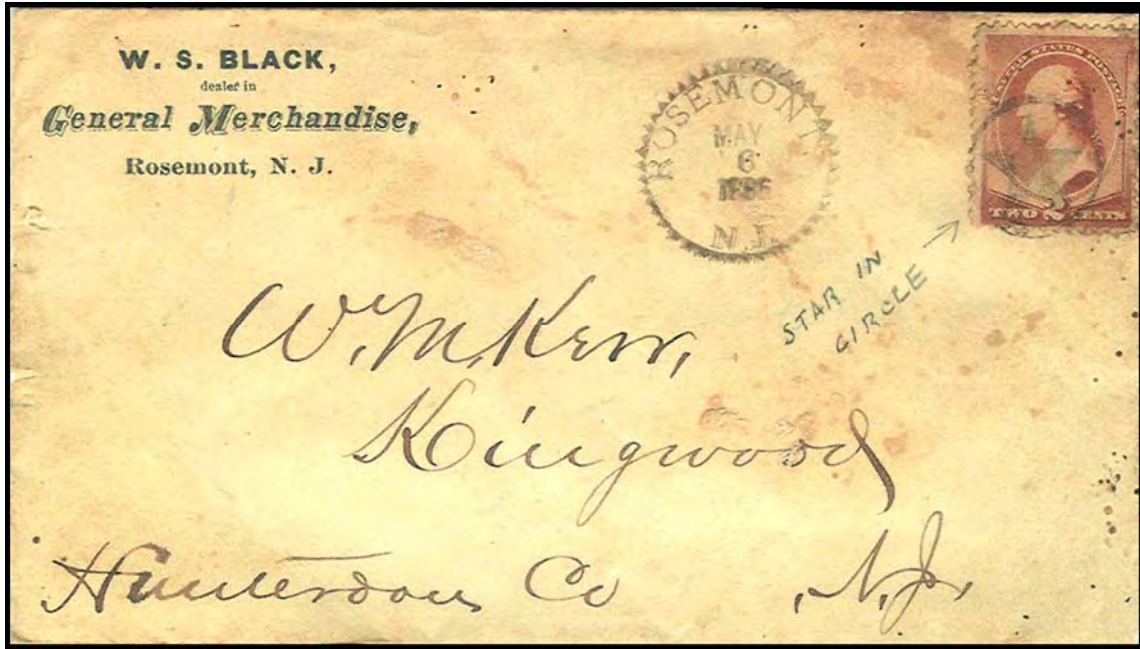 W. S. BLACK,
dealer in
General Merchandise,
Rosemont, N. J.
ROSEMONT
MAY
6
1886
N.J.
UNITED STATES POSTAGE
TWO 2 CENTS
STAR IN
CIRCLE
W. M. Kerr,
Kingwood
Hunterdon Co , N. J.